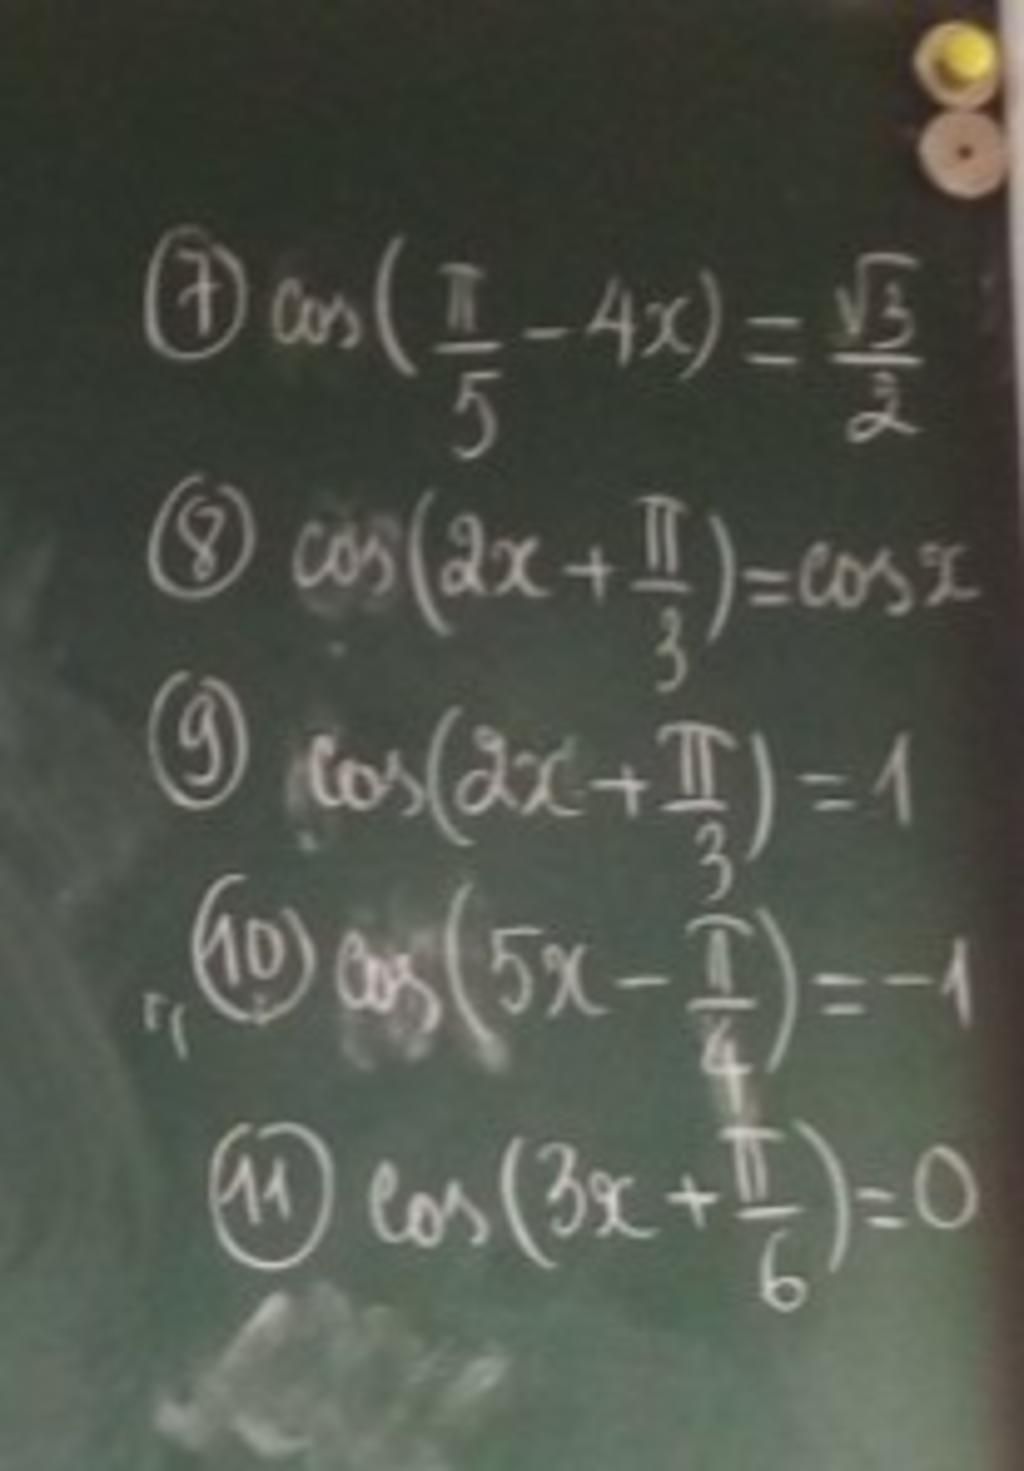 ⑦ cos(π/5 - 4x) = √3/2
⑧ cos(2x + π/3) = cos x
⑨ cos(2x + π/3) = 1
⑩ cos(5x - π/4) = -1
⑪ cos(3x + π/6) = 0